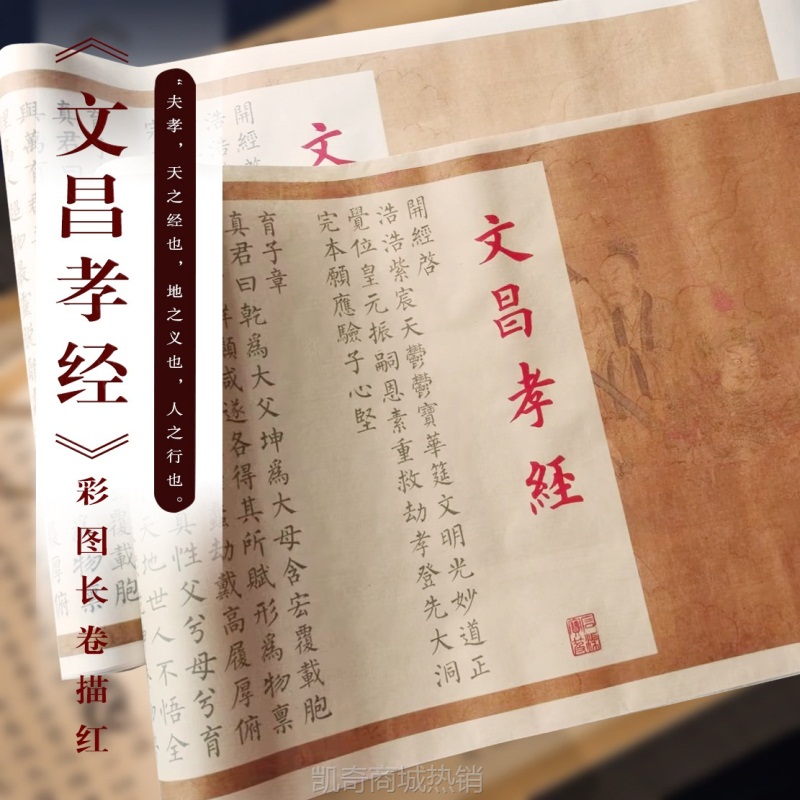 《文昌孝经》彩图长卷描红
“夫孝，天之经也，地之义也，人之行也。
文昌孝經
開經啓
浩浩紫宸天鬱鬱寶華筵文明光妙道正
覺位皇元振嗣恩素重救劫孝登先大洞
完本願應驗予心堅
育子章
真君曰乾爲大父坤爲大母含宏覆載胞
類咸遂各得其所賦形爲物禀
劫戴高履厚俯
真性父兮母兮育
天地世人不悟全
文
開經
浩浩
真君
與萬有
覆載胞
物禀
厚俯
凯奇商城热销